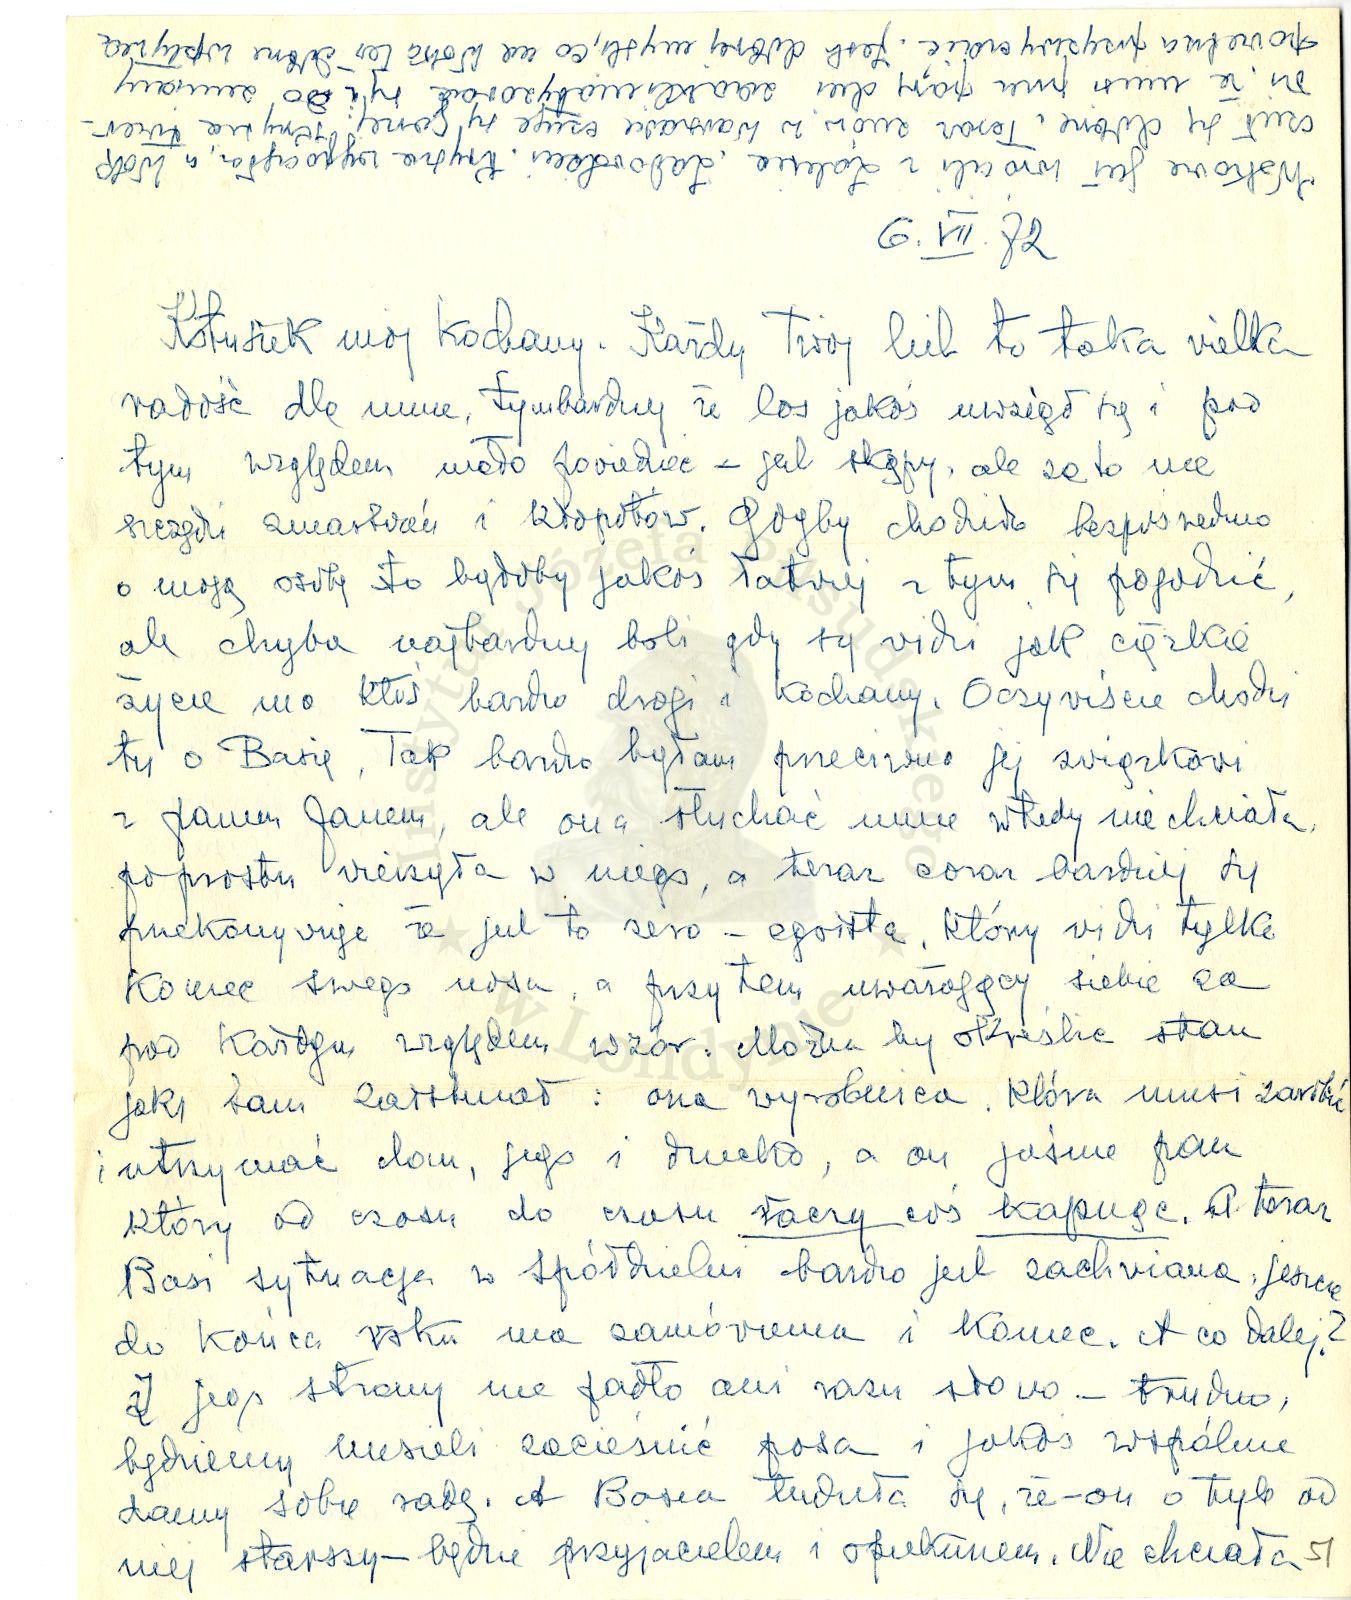 Witkowie już wrócili z Zalesia. Zadowoleni. Krysia wypoczęta, a Witek
czuł się dobrze. Teraz znów w Warszawie czuje się gorzej, Krysia twier-
dzi, że musi parę dni zaaklimatyzować się do zmiany
powietrza przyzwyczaić. Jest dobrej myśli, co na Witka też dobrze wpływa
6.VII.72
Kotusiek mój kochany. Każdy Twój list to taka wielka
radość dla mnie, tymbardziej że los jakoś uwziął się i pod
tym względem mało powiedzieć – jest skąpy, ale za to nie
szczędzi zmartwień i kłopotów. Gdyby chodziło bezpośrednio
o moją osobę to byłoby jakoś łatwiej z tym się pogodzić,
ale chyba najbardziej boli gdy się widzi jak ciężkie
życie ma ktoś bardzo drogi i kochany. Oczywiście chodzi
tu o Basię. Tak bardzo byłam przeciwna jej związkowi
z panem Janem, ale ona słuchać mnie wtedy nie chciała,
poprostu wierzyła w niego, a teraz coraz bardziej się
przekonywuje że jest to zero – egoista, który widzi tylko
koniec swego nosa, a przytem uważający siebie za
pod każdym względem wzór. Można by określić stan
jaki tam zaistniał: ona wyrobnica, która musi zarobić
i utrzymać dom, jego i dziecko, a on jaśnie pan
który od czasu do czasu raczy coś kapnąć. A teraz
Basi sytuacja w spółdzielni bardzo jest zachwiana, jeszcze
do końca roku ma zamówienia i koniec. A co dalej?
Z jego strony nie padło ani razu słowo – trudno,
będziemy musieli zacieśnić pasa i jakoś wspólnie
damy sobie radę. A Basia łudziła się, że – on o tyle od
niej starszy – będzie przyjacielem i opiekunem. Nie chciała
51
Instytut Józefa Piłsudskiego
w Londynie